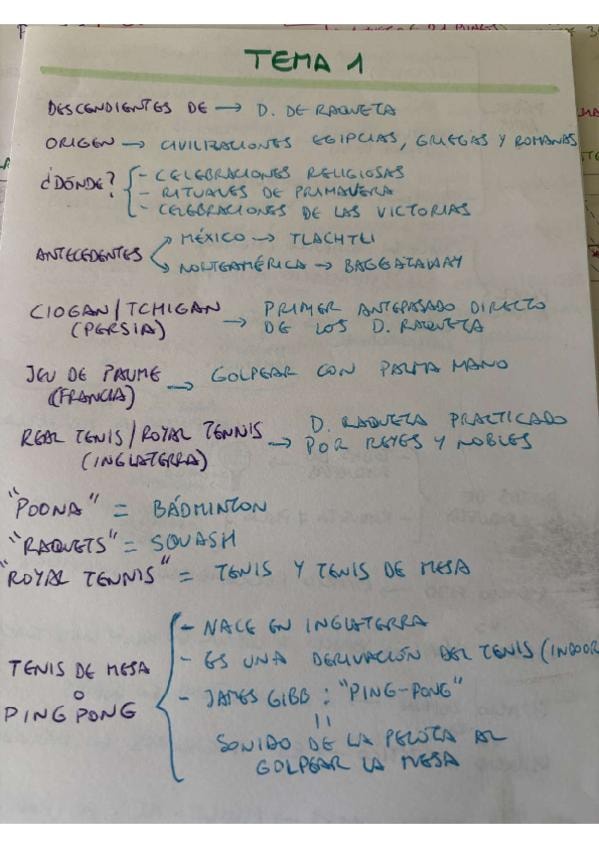 TEMA 1
DESCENDIENTES DE → D. DE RAQUETA
ORIGEN → CIVILIZACIONES EGIPCIAS, GRIEGAS Y ROMANAS
¿DÓNDE?
- CELEBRACIONES RELIGIOSAS
- RITUALES DE PRIMAVERA
- CELEBRACIONES DE LAS VICTORIAS
ANTECEDENTES
MÉXICO → TLACHTLI
NORTEAMÉRICA → BAGGATAWAY
CIOGAN/TCHIGAN → PRIMER ANTEPASADO DIRECTO
(PERSIA) DE LOS D. RAQUETA
JEU DE PAUME → GOLPEAR CON PALMA MANO
(FRANCIA)
REAL TENIS/ROYAL TENNIS → D. RAQUETA PRACTICADO
(INGLATERRA) POR REYES Y NOBLES
"POONA" = BÁDMINTON
"RAQUETS" = SQUASH
"ROYAL TENNIS" = TENIS Y TENIS DE MESA
TENIS DE MESA
O
PING PONG
- NACE EN INGLATERRA
- ES UNA DERIVACIÓN DEL TENIS (INDOOR
- JAMES GIBB : "PING-PONG"
=
SONIDO DE LA PELOTA AL
GOLPEAR LA MESA